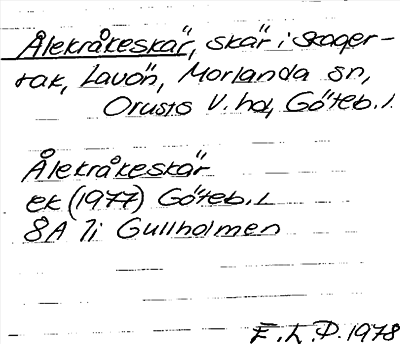 Ålekråkeskär, skär i Skager-
rak, Lavön, Morlanda sn,
Orusts V. hd, Göteb. l.
Ålekråkeskär
ek (1977) Göteb. L
8A 7i Gullholmen
F. L. P. 1978